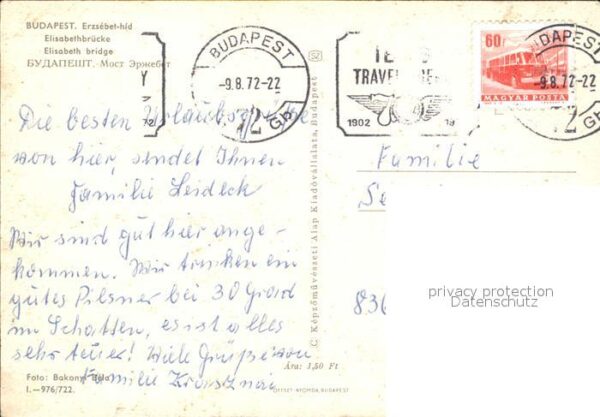 BUDAPEST. Erzsébet-híd
Elisabethbrücke
Elisabeth bridge
БУДАПЕШТ. Мост Эржебет
BUDAPEST
-9.8.72-22
72
TRAVEL
1902
60f
MAGYAR POSTA
BUDAPEST
-9.8.72-22
72
Die besten Urlaubsgrüße
von hier, sendet Ihnen
Familie Leideck
Wir sind gut hier ange-
kommen. Wir trinken ein
gutes Pilsner bei 30 Grad
im Schatten, es ist alles
sehr teuer! Viele Grüße von
Familie
C Képzőművészeti Alap Kiadóvállalata, Budapest
Familie
Se
836
privacy protection
Datenschutz
Ára: 1,50 Ft
Foto: Bakonyi Béla
I.—976/722.
OFFSET-NYOMDA, BUDAPEST